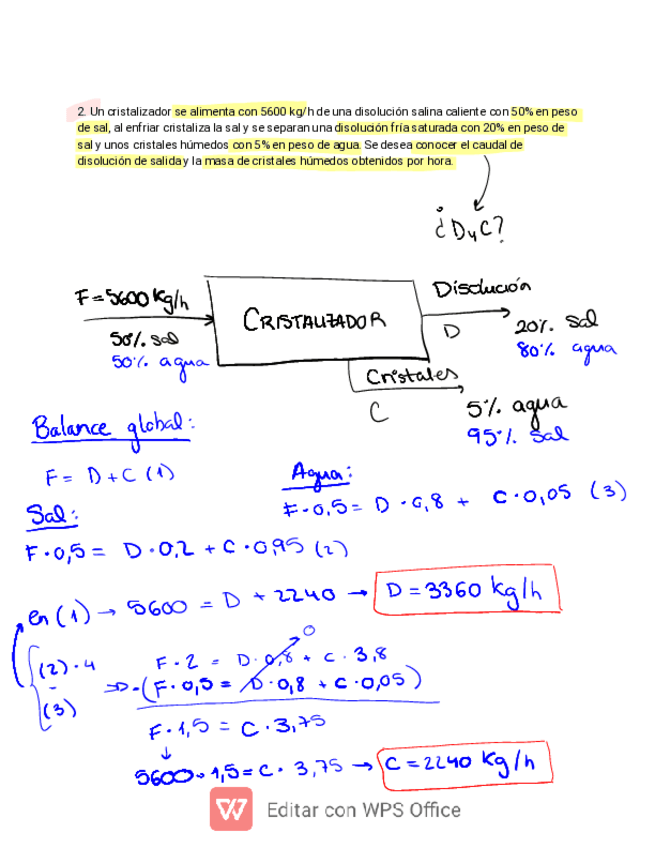 2. Un cristalizador se alimenta con 5600 kg/h de una disolución salina caliente con 50% en peso
de sal, al enfriar cristaliza la sal y se separan una disolución fría saturada con 20% en peso de
sal y unos cristales húmedos con 5% en peso de agua. Se desea conocer el caudal de
disolución de salida y la masa de cristales húmedos obtenidos por hora.
¿D y C?
F = 5600 Kg/h
50% sal
50% agua
CRISTALIZADOR
Disolución
D
20% sal
80% agua
Cristales
C
5% agua
95% sal
Balance global:
F = D + C (1)
Agua:
F·0,5 = D·0,8 + C·0,05 (3)
Sal:
F·0,5 = D·0,2 + C·0,95 (2)
en (1) → 5600 = D + 2240 → D = 3360 kg/h
(2)·4
-
(3)
F·2 = D·0,8 + C·3,8
0
⇒ -(F·0,5 = D·0,8 + C·0,05)
F·1,5 = C·3,75
↓
5600·1,5 = C·3,75 → C = 2240 Kg/h
Editar con WPS Office